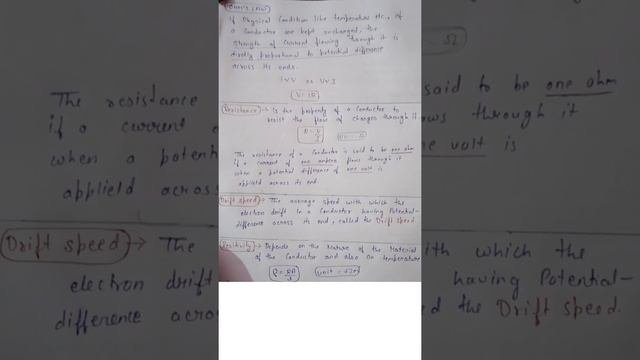 Ohm's Law:
If Physical Condition like temperature etc., of
a Conductor are kept unchanged, the
Strength of Current flowing through it is
directly proportional to potential difference
across its ends.
I ∝ V or V ∝ I
Resistance → is the property of a Conductor to
resist the flow of charges through it
The resistance of a Conductor is said to be one ohm
if a current of one ampere flows through it
when a potential difference of one volt is
applied across its end.
Drift speed → The average speed with which the
electron drift in a Conductor having Potential-
difference across its end, called the Drift speed.
→ Depends on the Nature of the Material
of the Conductor and also on temperature
The resistance
if a current
when a poten
applied across
Drift speed → The
electron drift
difference across
said to be one ohm
ows through it
ne volt is
with which the
having Potential-
d the Drift speed.